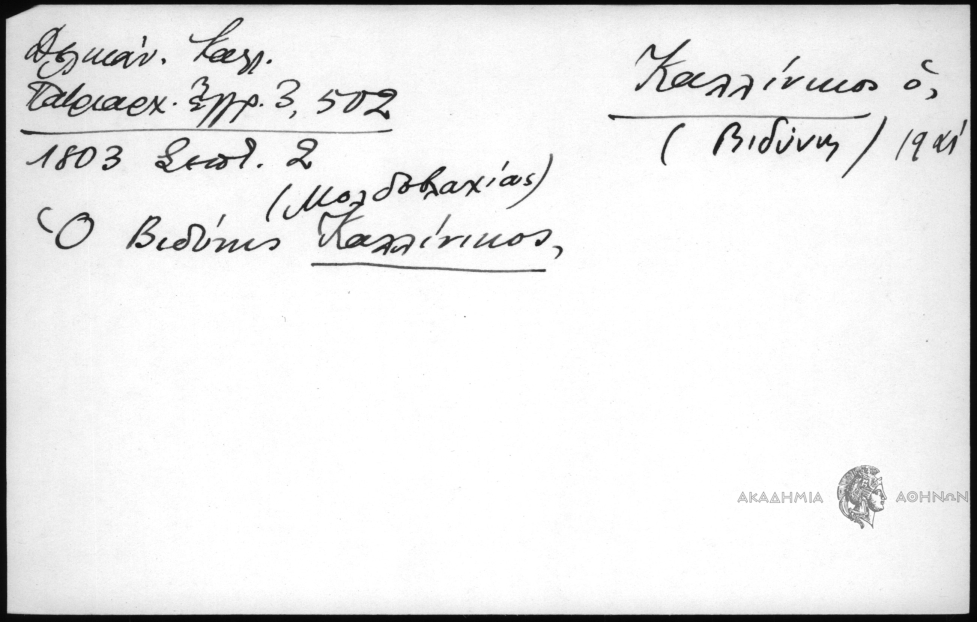 Δελικάν. Καλλ.
Πατριαρχ. Ἔγγρ. 3, 502
1803 Σεπτ. 2
(Μολδοβλαχίας)
Ὁ Βιδύνης Καλλίνικος,
Καλλίνικος ὁ,
(Βιδύνης)
ΑΚΑΔΗΜΙΑ ΑΘΗΝΩΝ